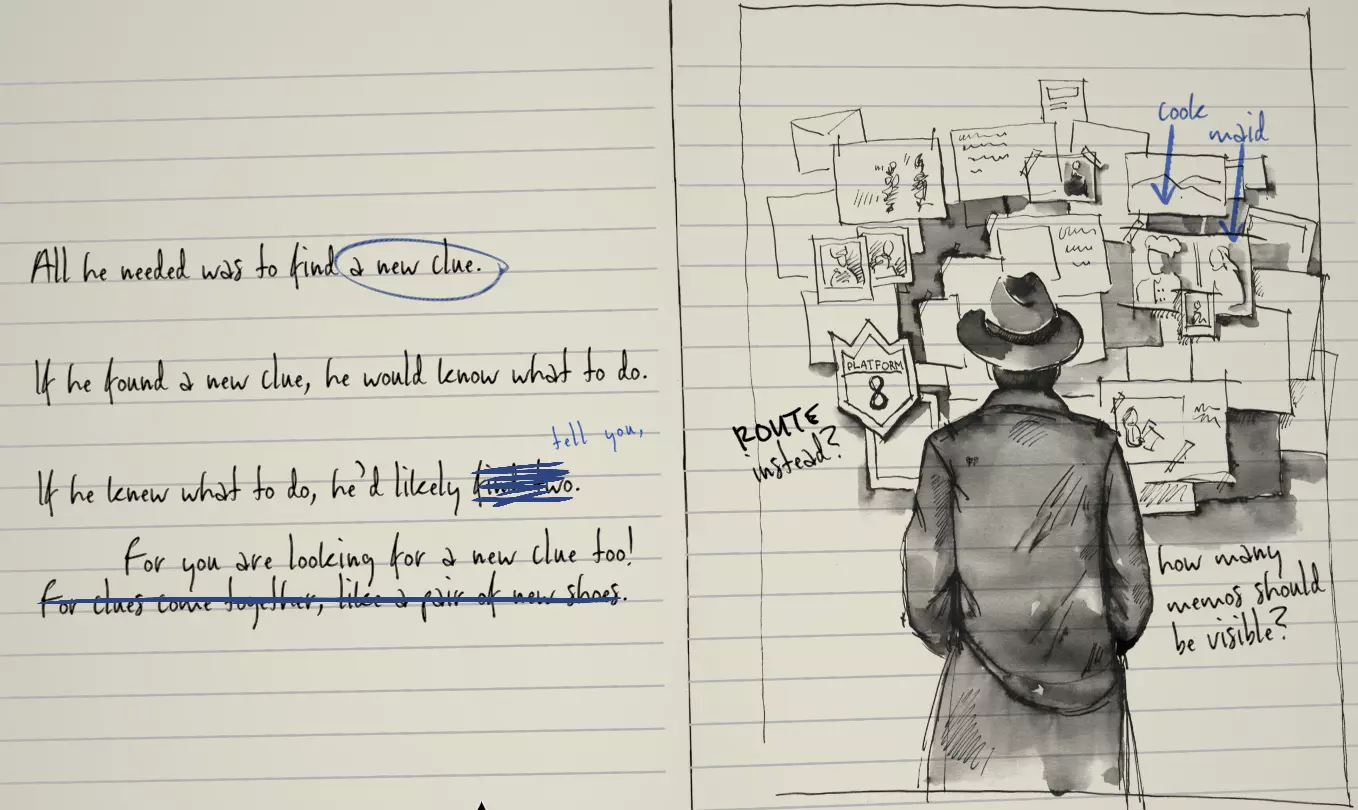 All he needed was to find a new clue.
If he found a new clue, he would know what to do.
tell you,
If he knew what to do, he'd likely find two.
For you are looking for a new clue too!
For clues come together, like a pair of new shoes.
cook
maid
PLATFORM
8
ROUTE
instead?
how many
memos should
be visible?